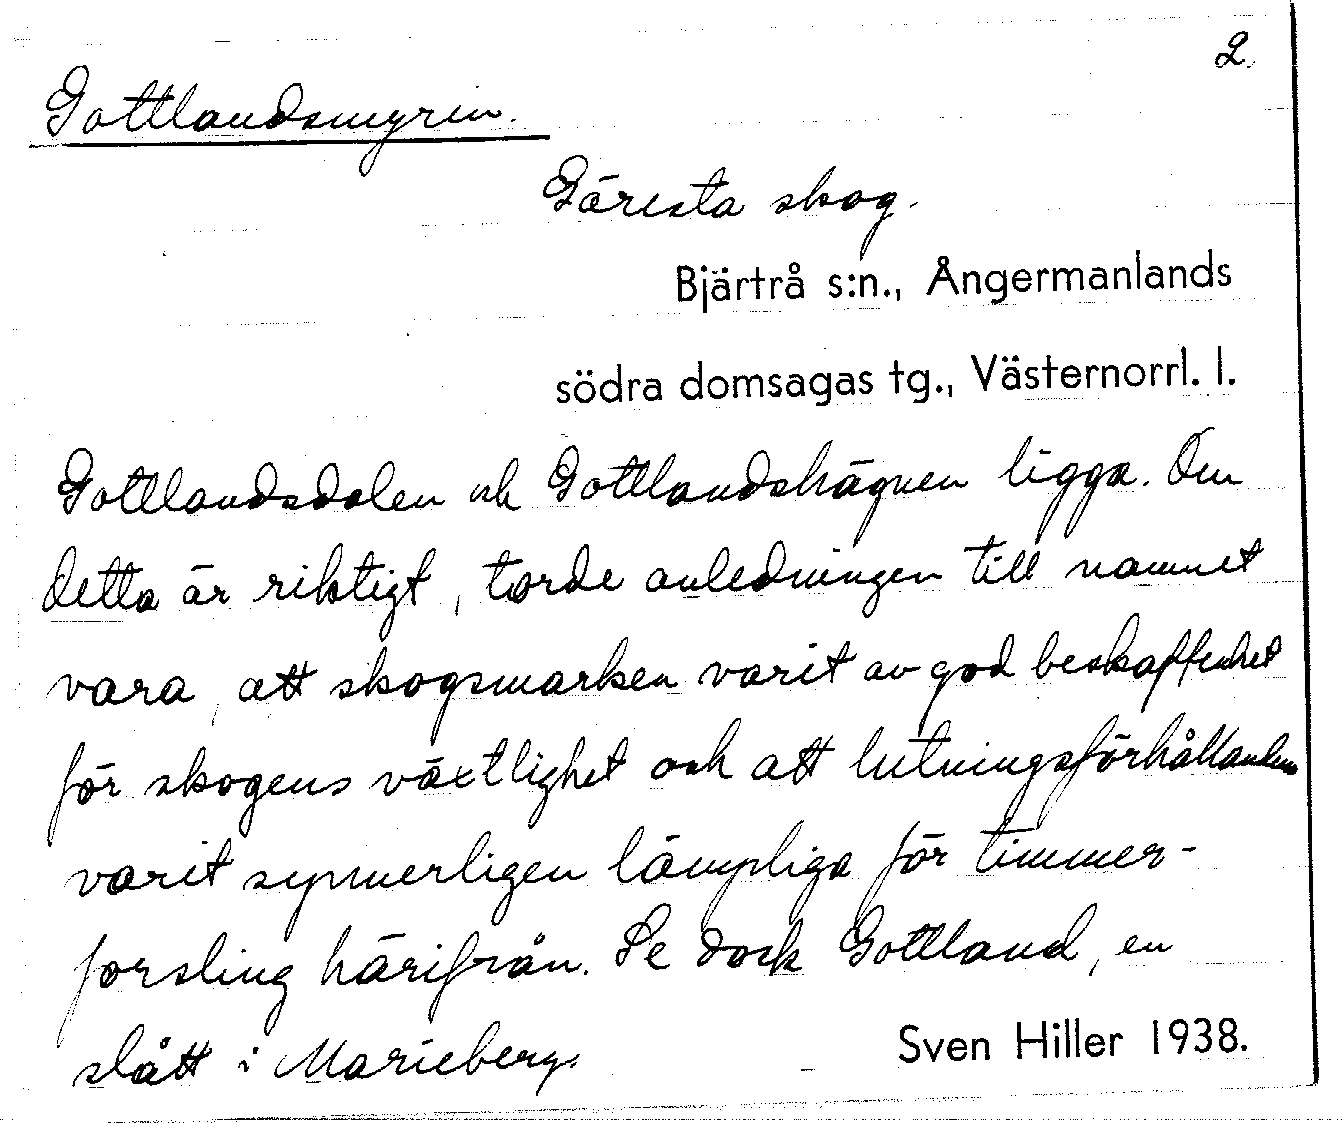 2.
Gottlandsmyren.
Gäresta skog.
Bjärtrå s:n., Ångermanlands
södra domsagas tg., Västernorrl. l.
Gottlandsdalen och Gottlandshägnen ligga. Om
detta är riktigt, torde anledningen till namnet
vara, att skogsmarken varit av god beskaffenhet
för skogens växtlighet och att lutningsförhållandena
varit synnerligen lämpliga för timmer-
forsling härifrån. Se dock Gottland, en
slått i Marieberg.
Sven Hiller 1938.